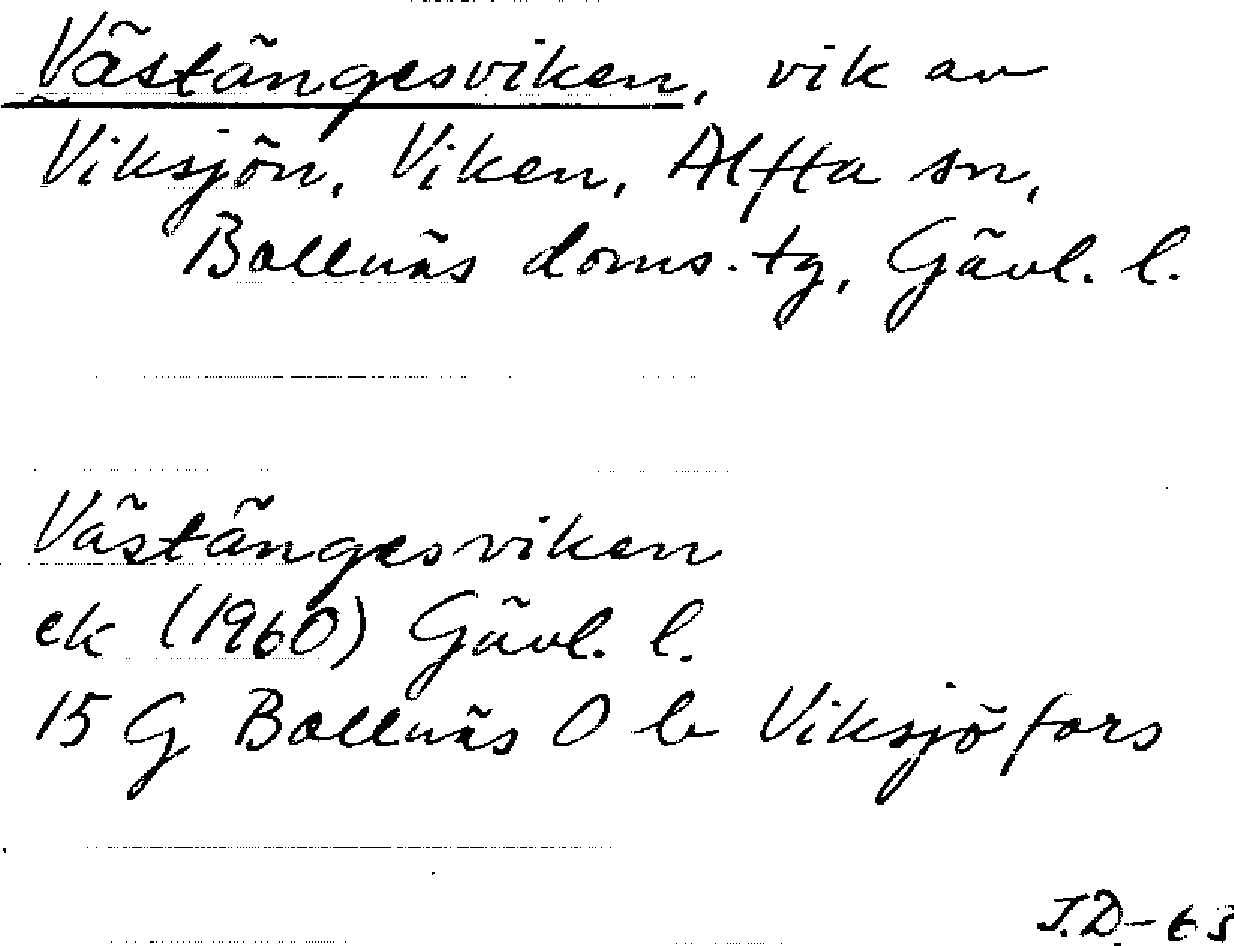 Västängesviken, vik av
Viksjön, Viken, Alfta sn,
Bollnäs doms. tg, Gävl. l.
Västängesviken
ek (1960) Gävl. l.
15 G Bollnäs O b Viksjöfors
J.D-63